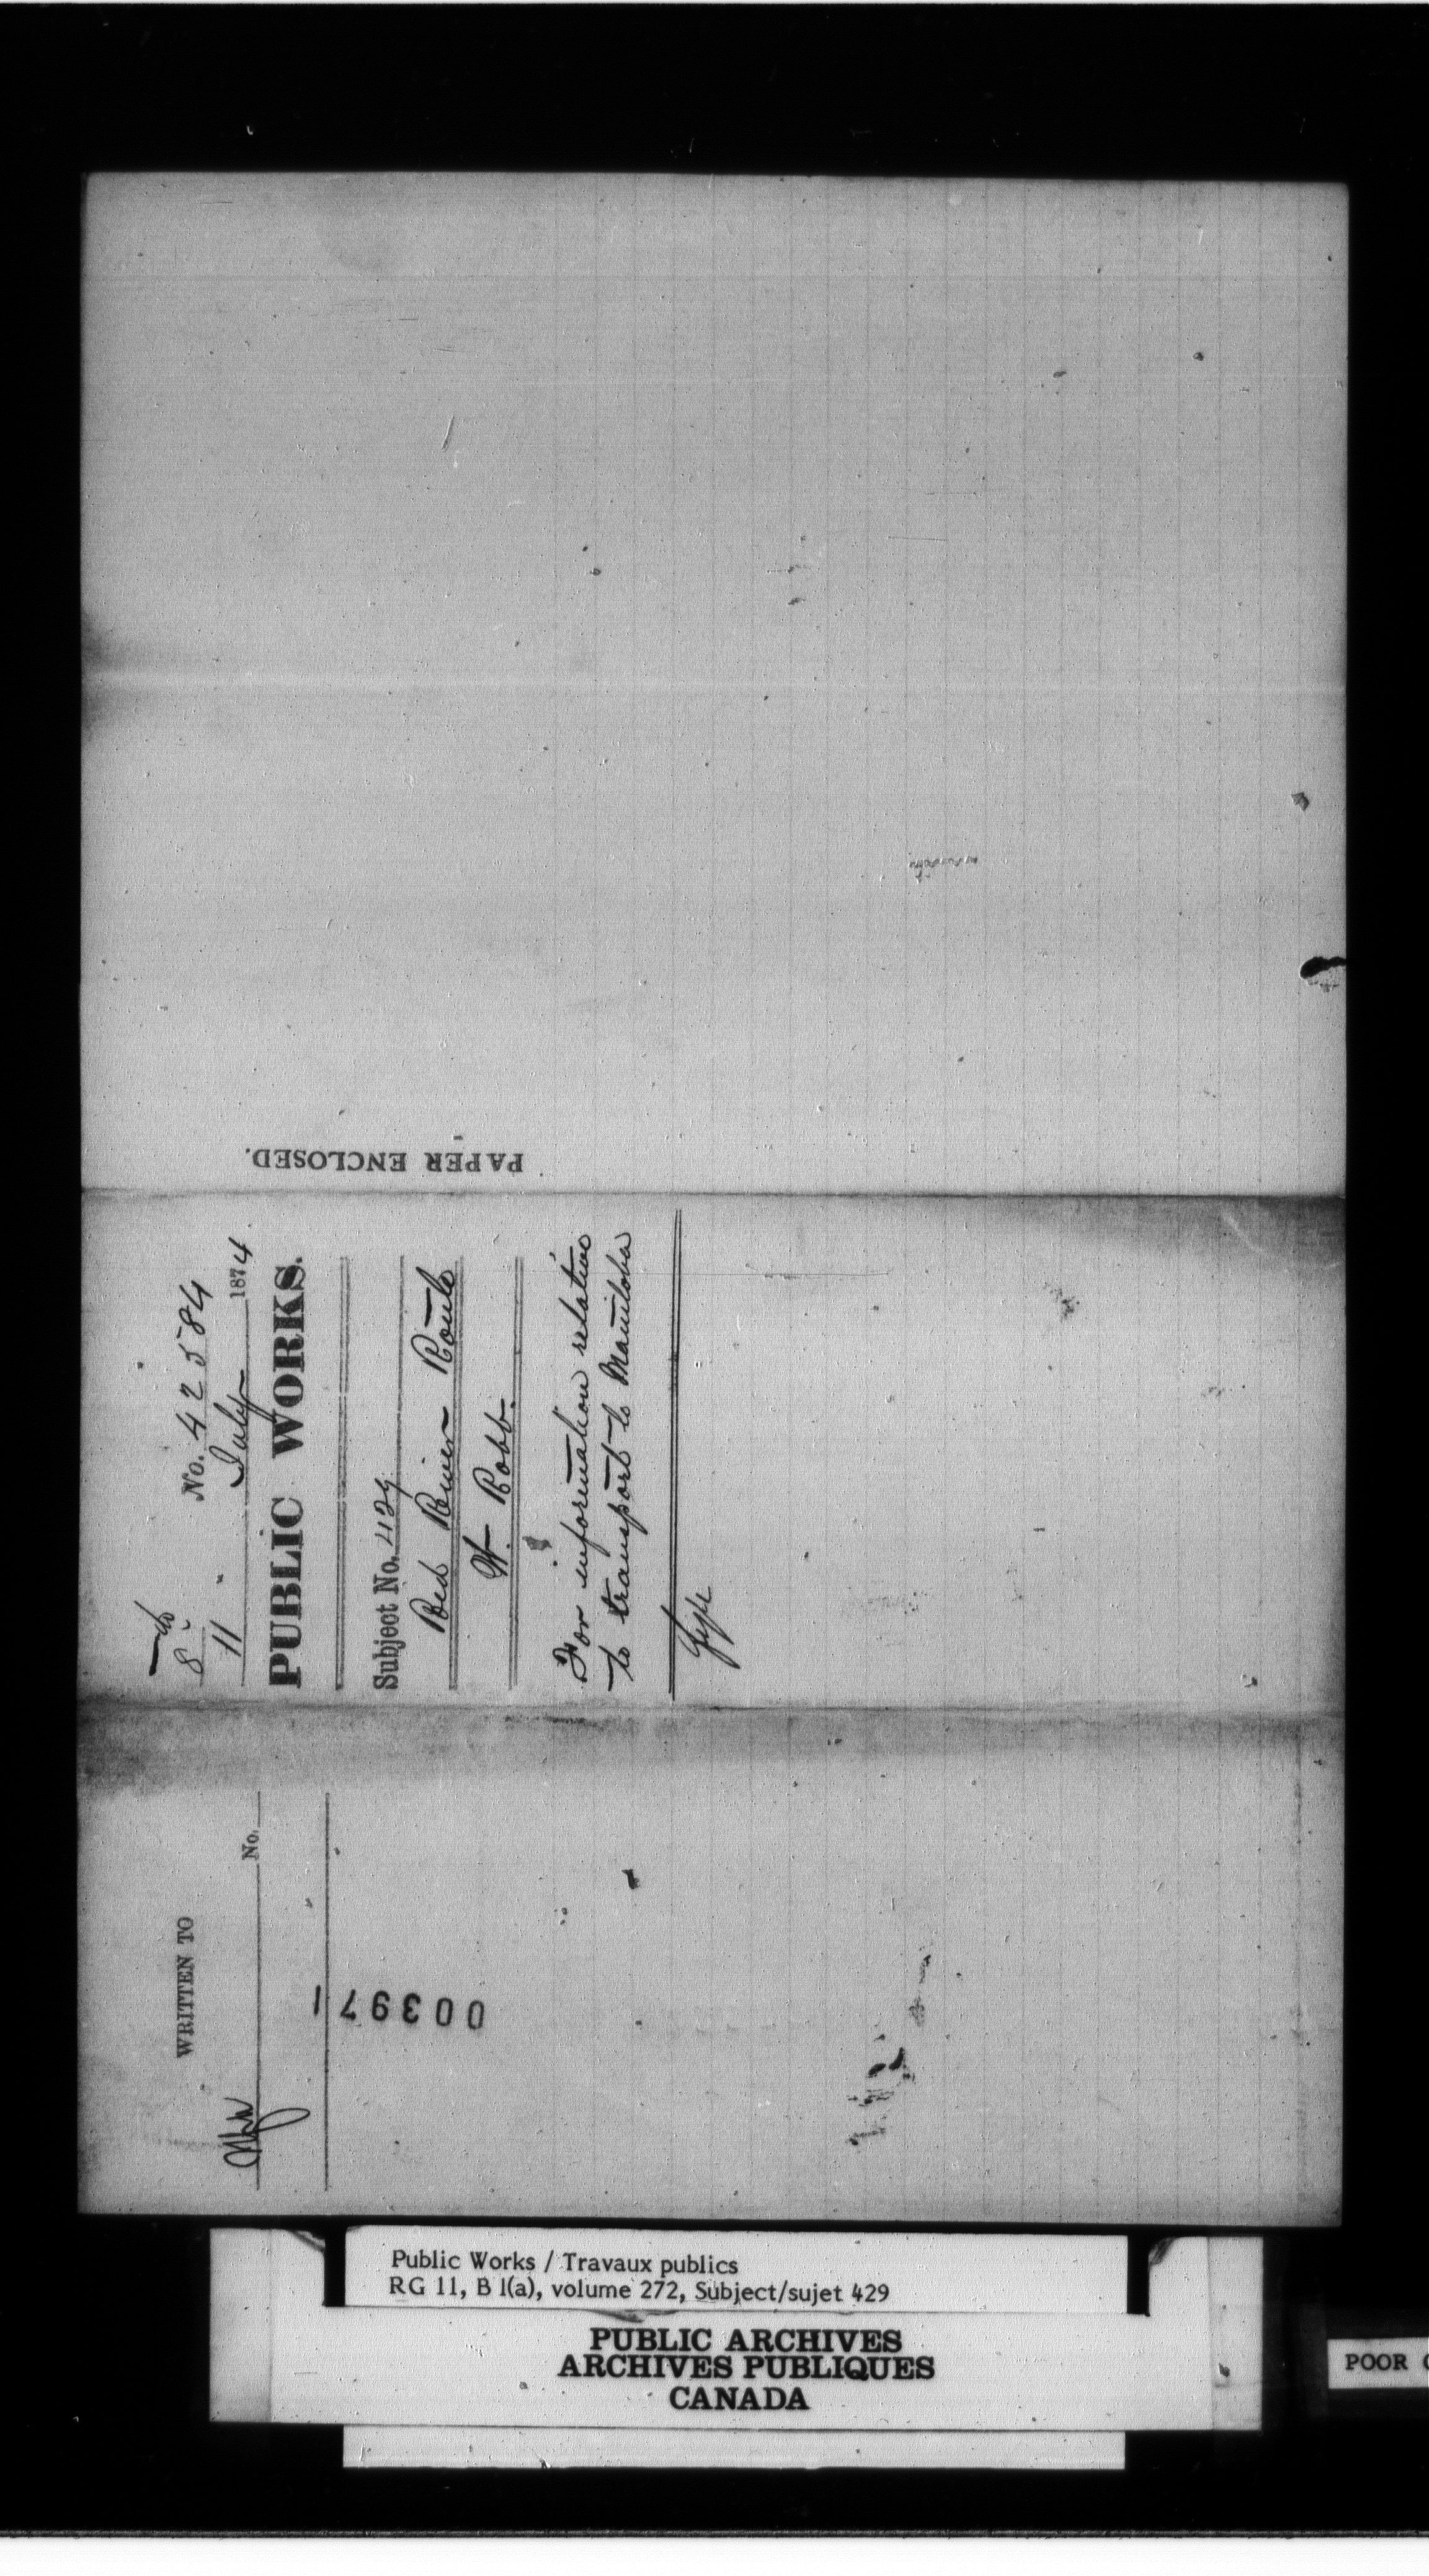 PAPER ENCLOSED.
8 No. 42584
11 July 1874
PUBLIC WORKS.
Subject No. 429
Red River Route
W. Robb.
For information relative
to transport to Manitoba
WRITTEN TO
No.
003971
Public Works / Travaux publics
RG 11, B 1(a), volume 272, Subject/sujet 429
PUBLIC ARCHIVES
ARCHIVES PUBLIQUES
CANADA
POOR